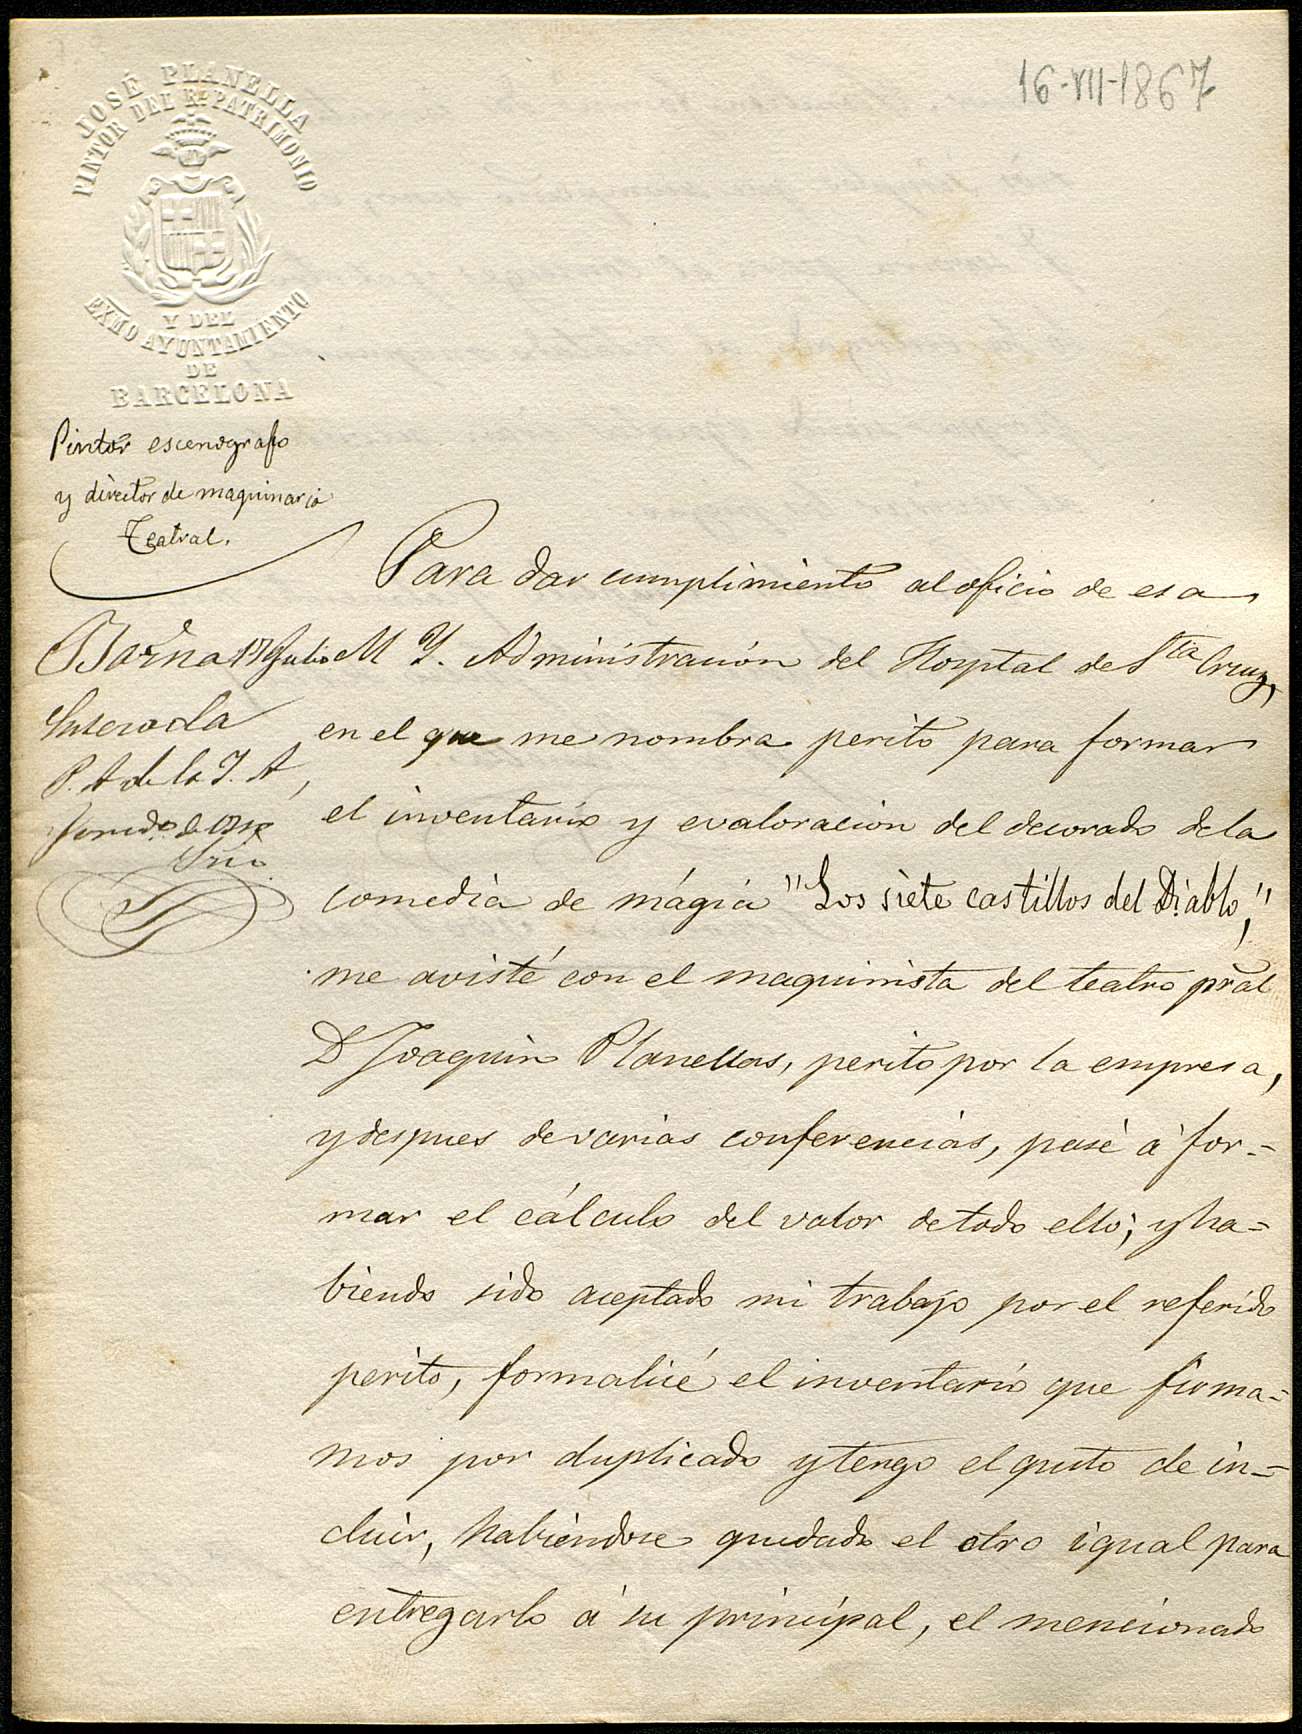 16-VII-1867
JOSÉ PLANELLA
PINTOR DEL Rl. PATRIMONIO
Y DEL
EXMO AYUNTAMIENTO
DE
BARCELONA
Pintor escenografo
y director de maquinaria
Teatral.
Barna 17 Julio
P. A de la J. A,
Para dar cumplimiento al oficio de esa
M Y. Administración del Hospital de Sta Cruz,
en el que me nombra perito para formar
el inventario y evaloracion del decorado de la
comedia de mágia "Los siete castillos del Diablo,"
me avisté con el maquinista del teatro pral
D Joaquin Planellas, perito por la empresa,
y despues de varias conferencias, pasé á for=
mar el cálculo del valor de todo ello; y ha=
biendo sido aceptado mi trabajo por el referido
perito, formalicé el inventario que firma=
mos por duplicado y tengo el gusto de in=
cluir, habiendose quedado el otro igual para
entregarlo á su principal, el mencionado